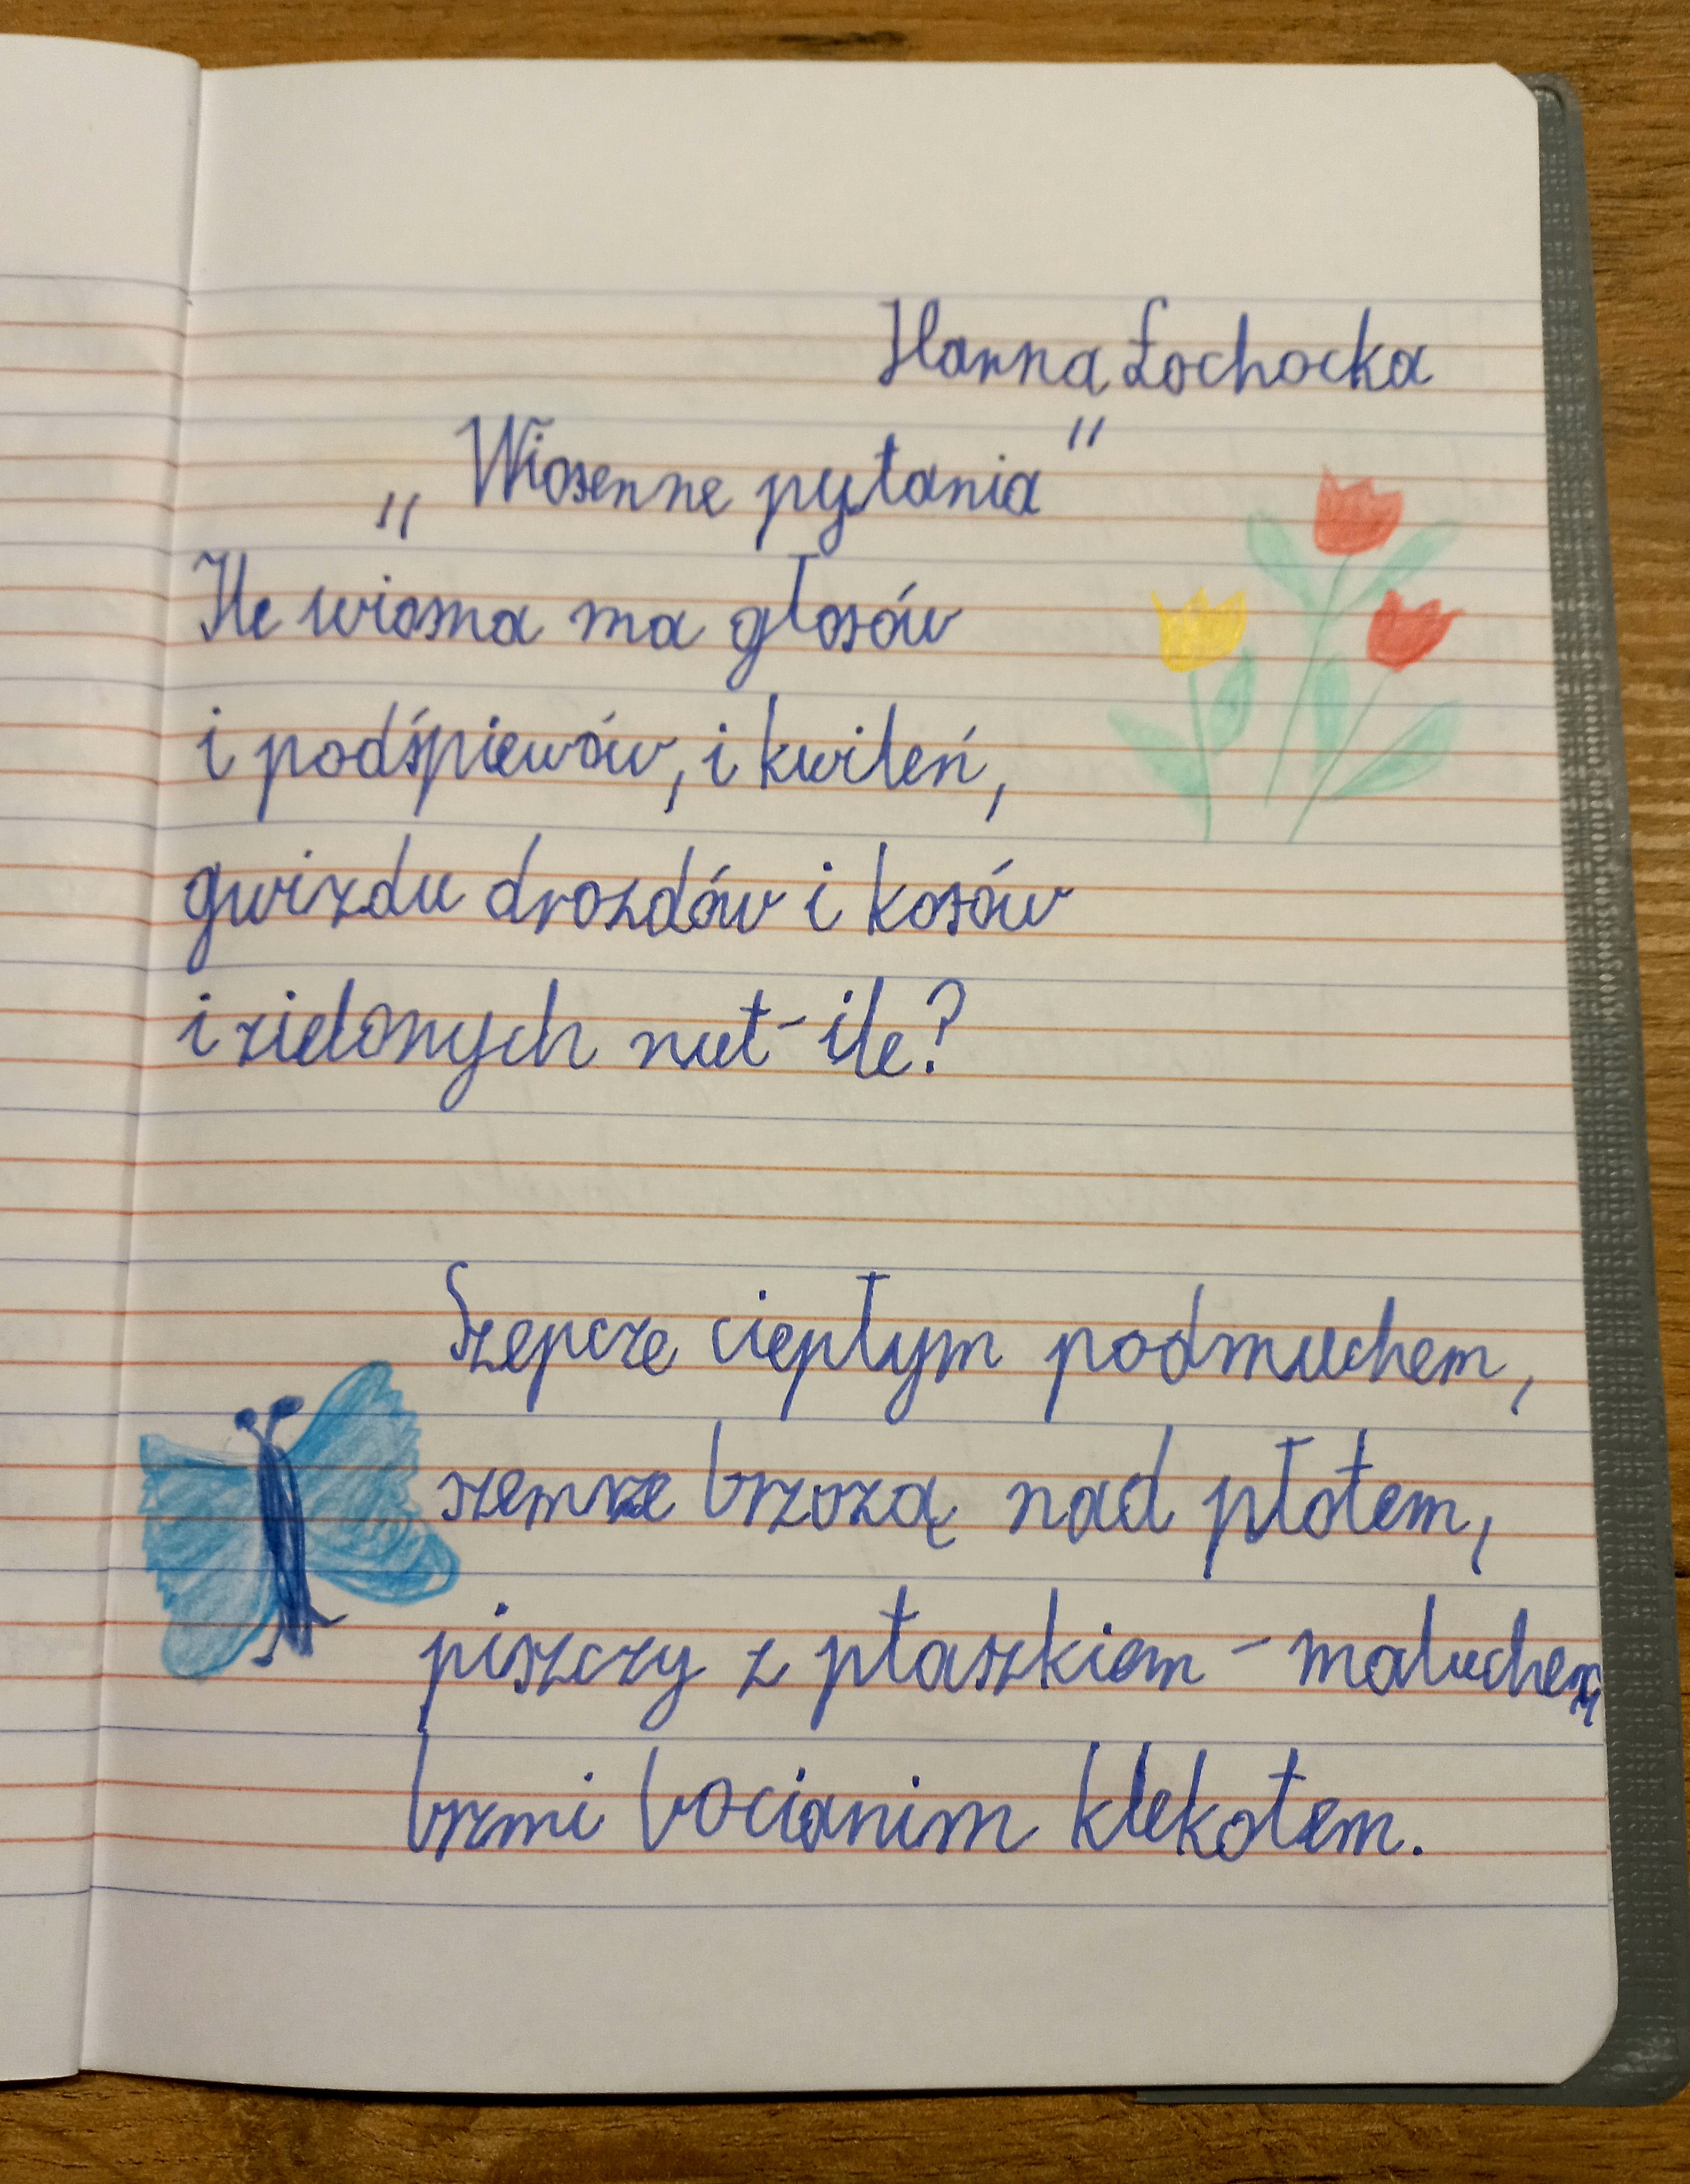 Hanna Łochocka
„Wiosenne pytania"
Ile wiosna ma głosów
i podśpiewów, i kwileń,
gwizdu drozdów i kosów
i zielonych nut - ile?
Szepcze ciepłym podmuchem,
szemrze brzozą nad płotem,
piszczy z ptaszkiem - maluchem,
brzmi bocianim klekotem.